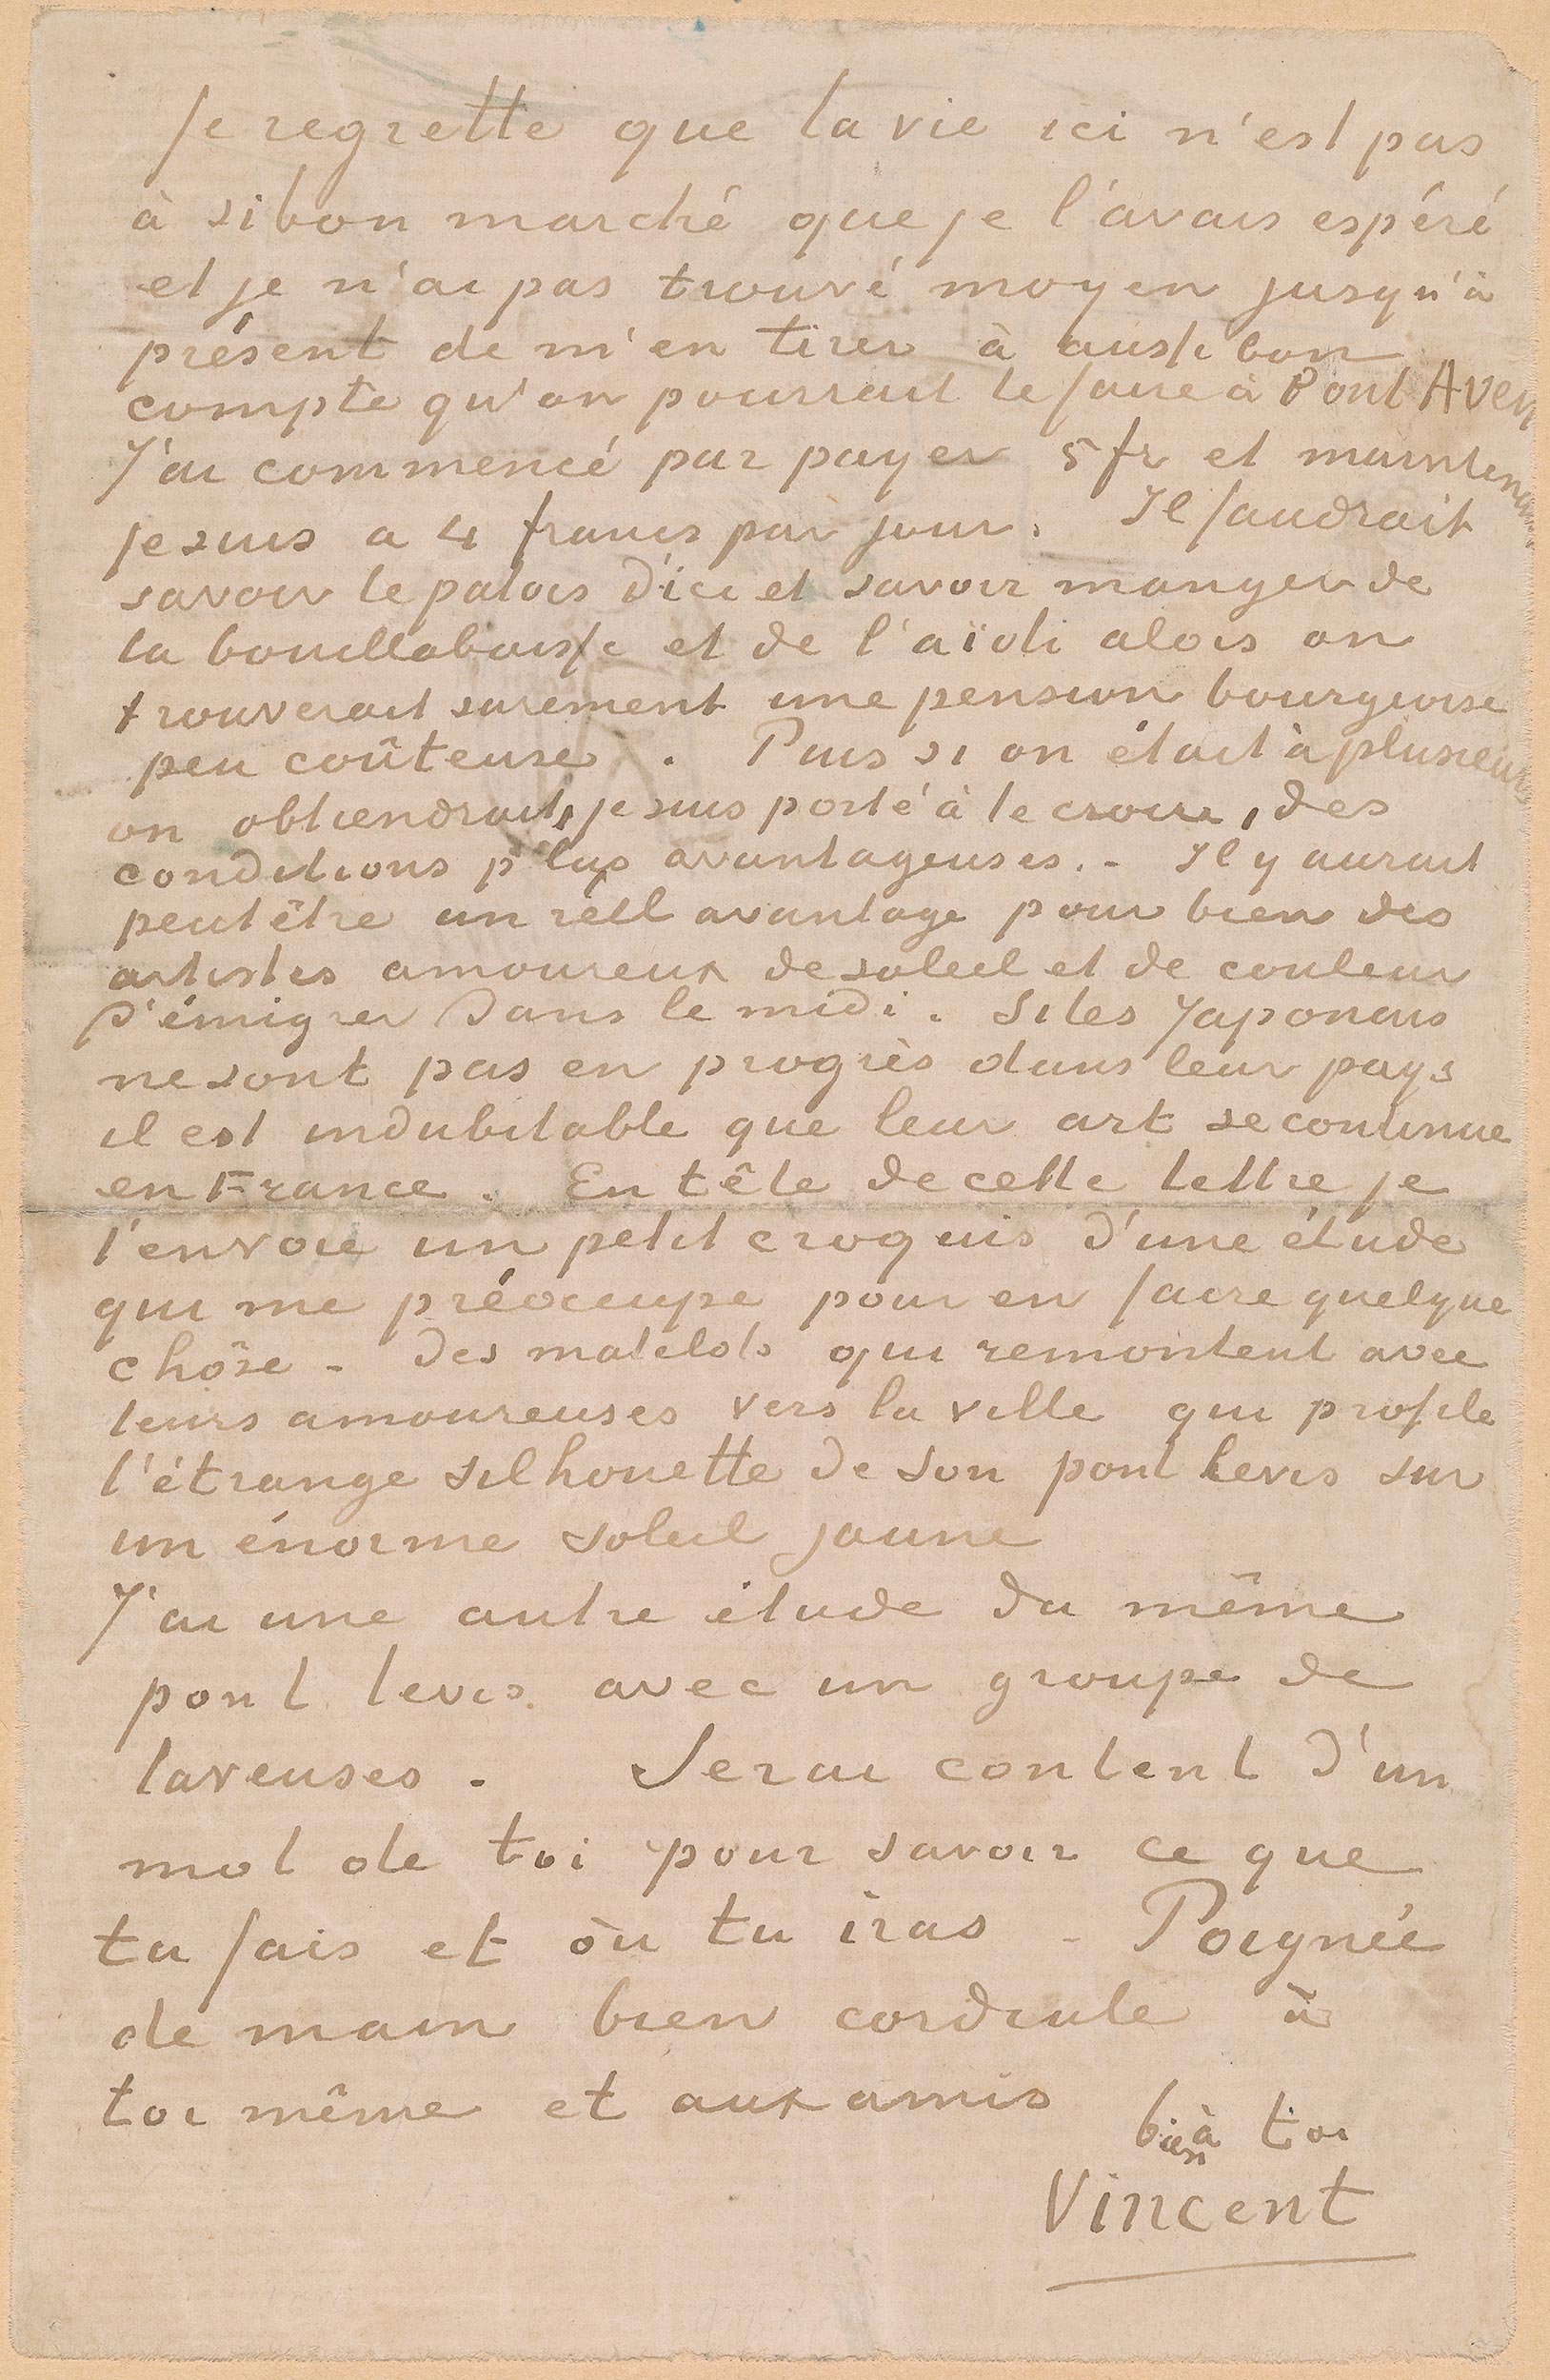 Je regrette que la vie ici n'est pas
à si bon marché que je l'avais espéré
et je n'ai pas trouvé moyen jusqu'à
présent de m'en tirer à aussi bon
compte qu'on pourrait le faire à Pont Aven
J'ai commencé par payer 5 fr et maintenant
je suis a 4 francs par jour. Il faudrait
savoir le patois d'ici et savoir manger de
la bouillabaisse et de l'aïoli alors on
trouverait surement une pension bourgeoise
peu coûteuse. Puis si on était à plusieurs
on obtiendrait, je suis porté à le croire, des
conditions plus avantageuses. - Il y aurait
peut être un réel avantage pour bien des
artistes amoureux de soleil et de couleur
d'émigrer dans le midi. Si les Japonais
ne sont pas en progrès dans leur pays
il est indubitable que leur art se continue
en France. En tête de cette lettre je
t'envoie un petit croquis d'une étude
qui me préoccupe pour en faire quelque
chôse - des matelots qui remontent avec
leurs amoureuses vers la ville qui profile
l'étrange silhouette de son pont levis sur
un énorme soleil jaune
J'ai une autre étude du même
pont levis avec un groupe de
laveuses. Serai content d'un
mot de toi pour savoir ce que
tu fais et où tu iras - Poignée
de main bien cordiale à
toi même et aux amis
bien à toi
Vincent